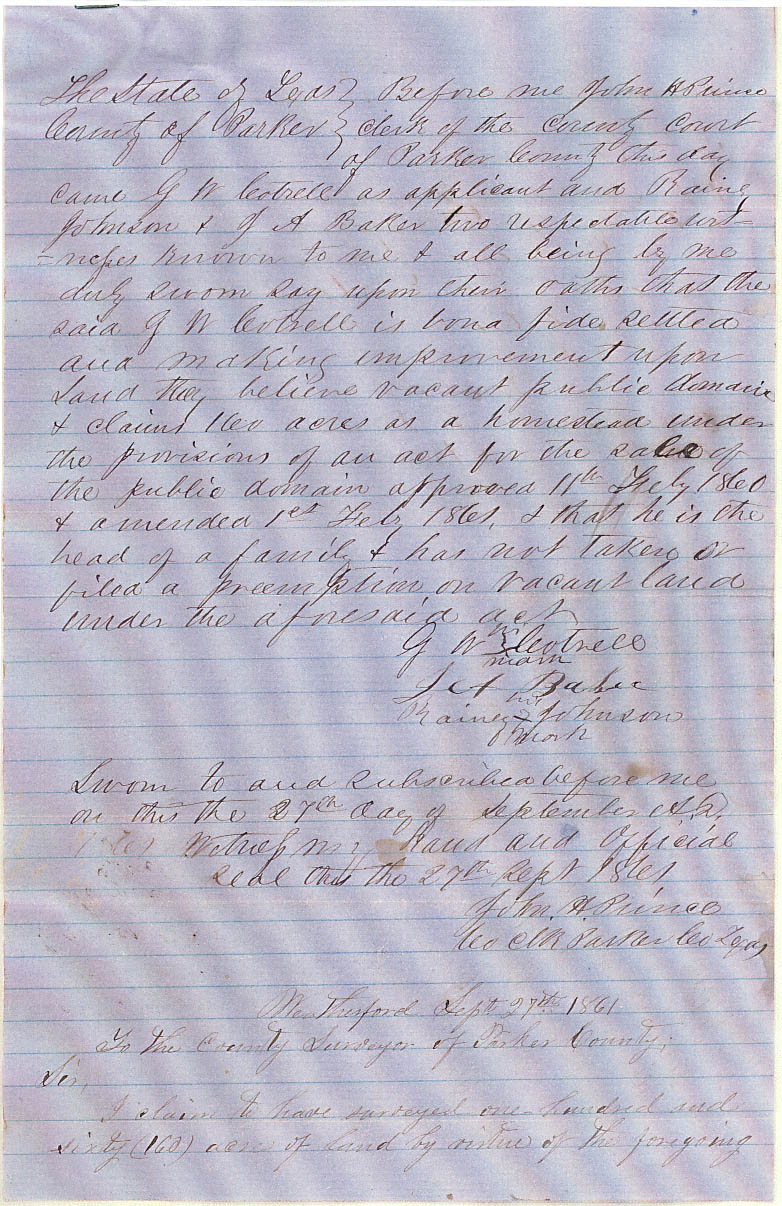 The State of Texas } Before me John H Prince
County of Parker } clerk of the County Court
of Parker County this day
came G W Cotrell as applicant and Rainey
Johnson & J A Baker two respectable wit=
=nesses known to me & all being by me
duly sworn say upon their oaths that the
said G W Cotrell is bona fide settled
and making improvement upon
Land they believe vacant public domain
& claims 160 acres as a homestead under
the provisions of an act for the sale of
the public domain approved 11th Feby 1860
& amended 1st Feby 1861, & that he is the
head of a family & has not taken or
filed a preemption on vacant land
under the aforesaid act
G W his Cotrell
mark
J A Baker
Rainey his Johnson
mark
Sworn to and subscribed before me
on this the 27th day of September A.D.
1861 Witness my hand and Official
seal this the 27th Sept 1861
John H Prince
Co Clk Parker Co Texas
Weatherford Sept 27th 1861
To the County Surveyor of Parker County;
Sir,
I claim to have surveyed one-hundred and
sixty (160) acres of land by virtue of the foregoing